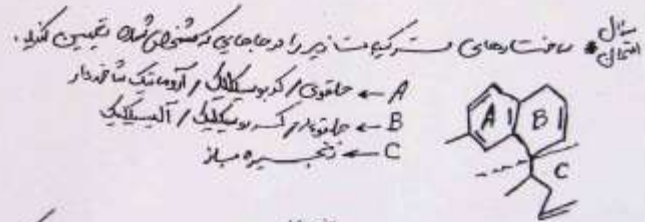 سوال امتحانی • ساختارهای ترکیبات زیر را در جاهای که مشخص شده تعیین کنید.
A ← حلقوی / کربوسیکلیک / آروماتیک شاخه‌دار
B ← حلقوی / کربوسیکلیک / آلیسیکلیک
C ← زنجیره باز
A
B
C